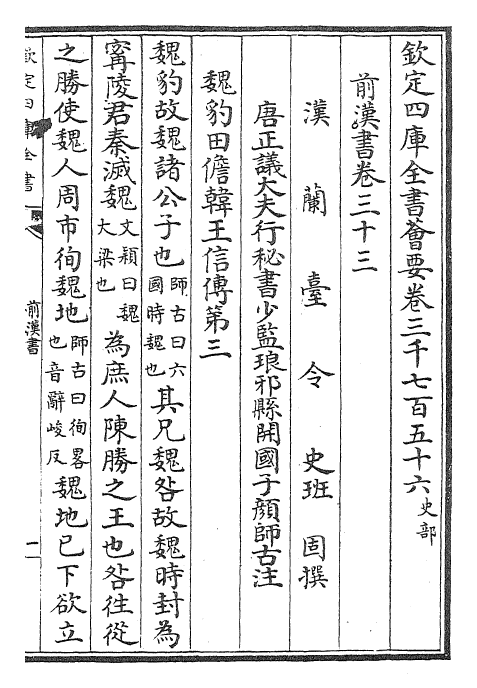 欽定四庫全書薈要卷三千七百五十六史部
前漢書卷三十三
漢蘭臺令史班固撰
唐正議大夫行秘書少監琅邪縣開國子顏師古注
魏豹田儋韓王信傳第三
魏豹故魏諸公子也師古曰六國時魏也其兄魏咎故魏時封為
甯陵君秦滅魏文穎曰魏大梁也為庶人陳勝之王也咎往從
之勝使魏人周市徇魏地師古曰徇畧也音辭峻反魏地已下欲立
欽定四庫全書
前漢書
一